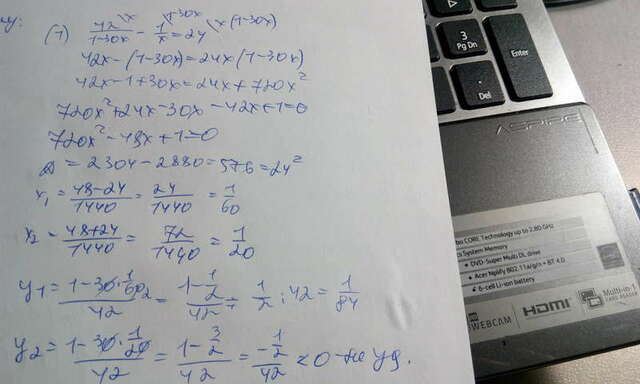 (1) 42/(1-30x) - 1/x = 24
42x - (1-30x) = 24x(1-30x)
42x - 1 + 30x = 24x + 720x²
720x² + 24x - 30x - 42x + 1 = 0
720x² - 48x + 1 = 0
D = 2304 - 2880 = 576 = 24²
x₁ = (48-24)/1440 = 24/1440 = 1/60
x₂ = (48+24)/1440 = 72/1440 = 1/20
y₁ = (1-30·1/60)/42 = (1-1/2)/42 = 1/2 : 42 = 1/84
y₂ = (1-30·1/20)/42 = (1-3/2)/42 = (-1/2)/42 < 0 - не уд.
3
Pg Dn
Enter
.
Del
ASPIRE
CORE Technology up to 2.80 GHz
System Memory
• DVD-Super Multi DL drive
• Acer Nplify 802.11a/g/n + BT 4.0
• 6-cell Li-ion battery
WEBCAM
HDMI
Multi-in-1
CARD READER